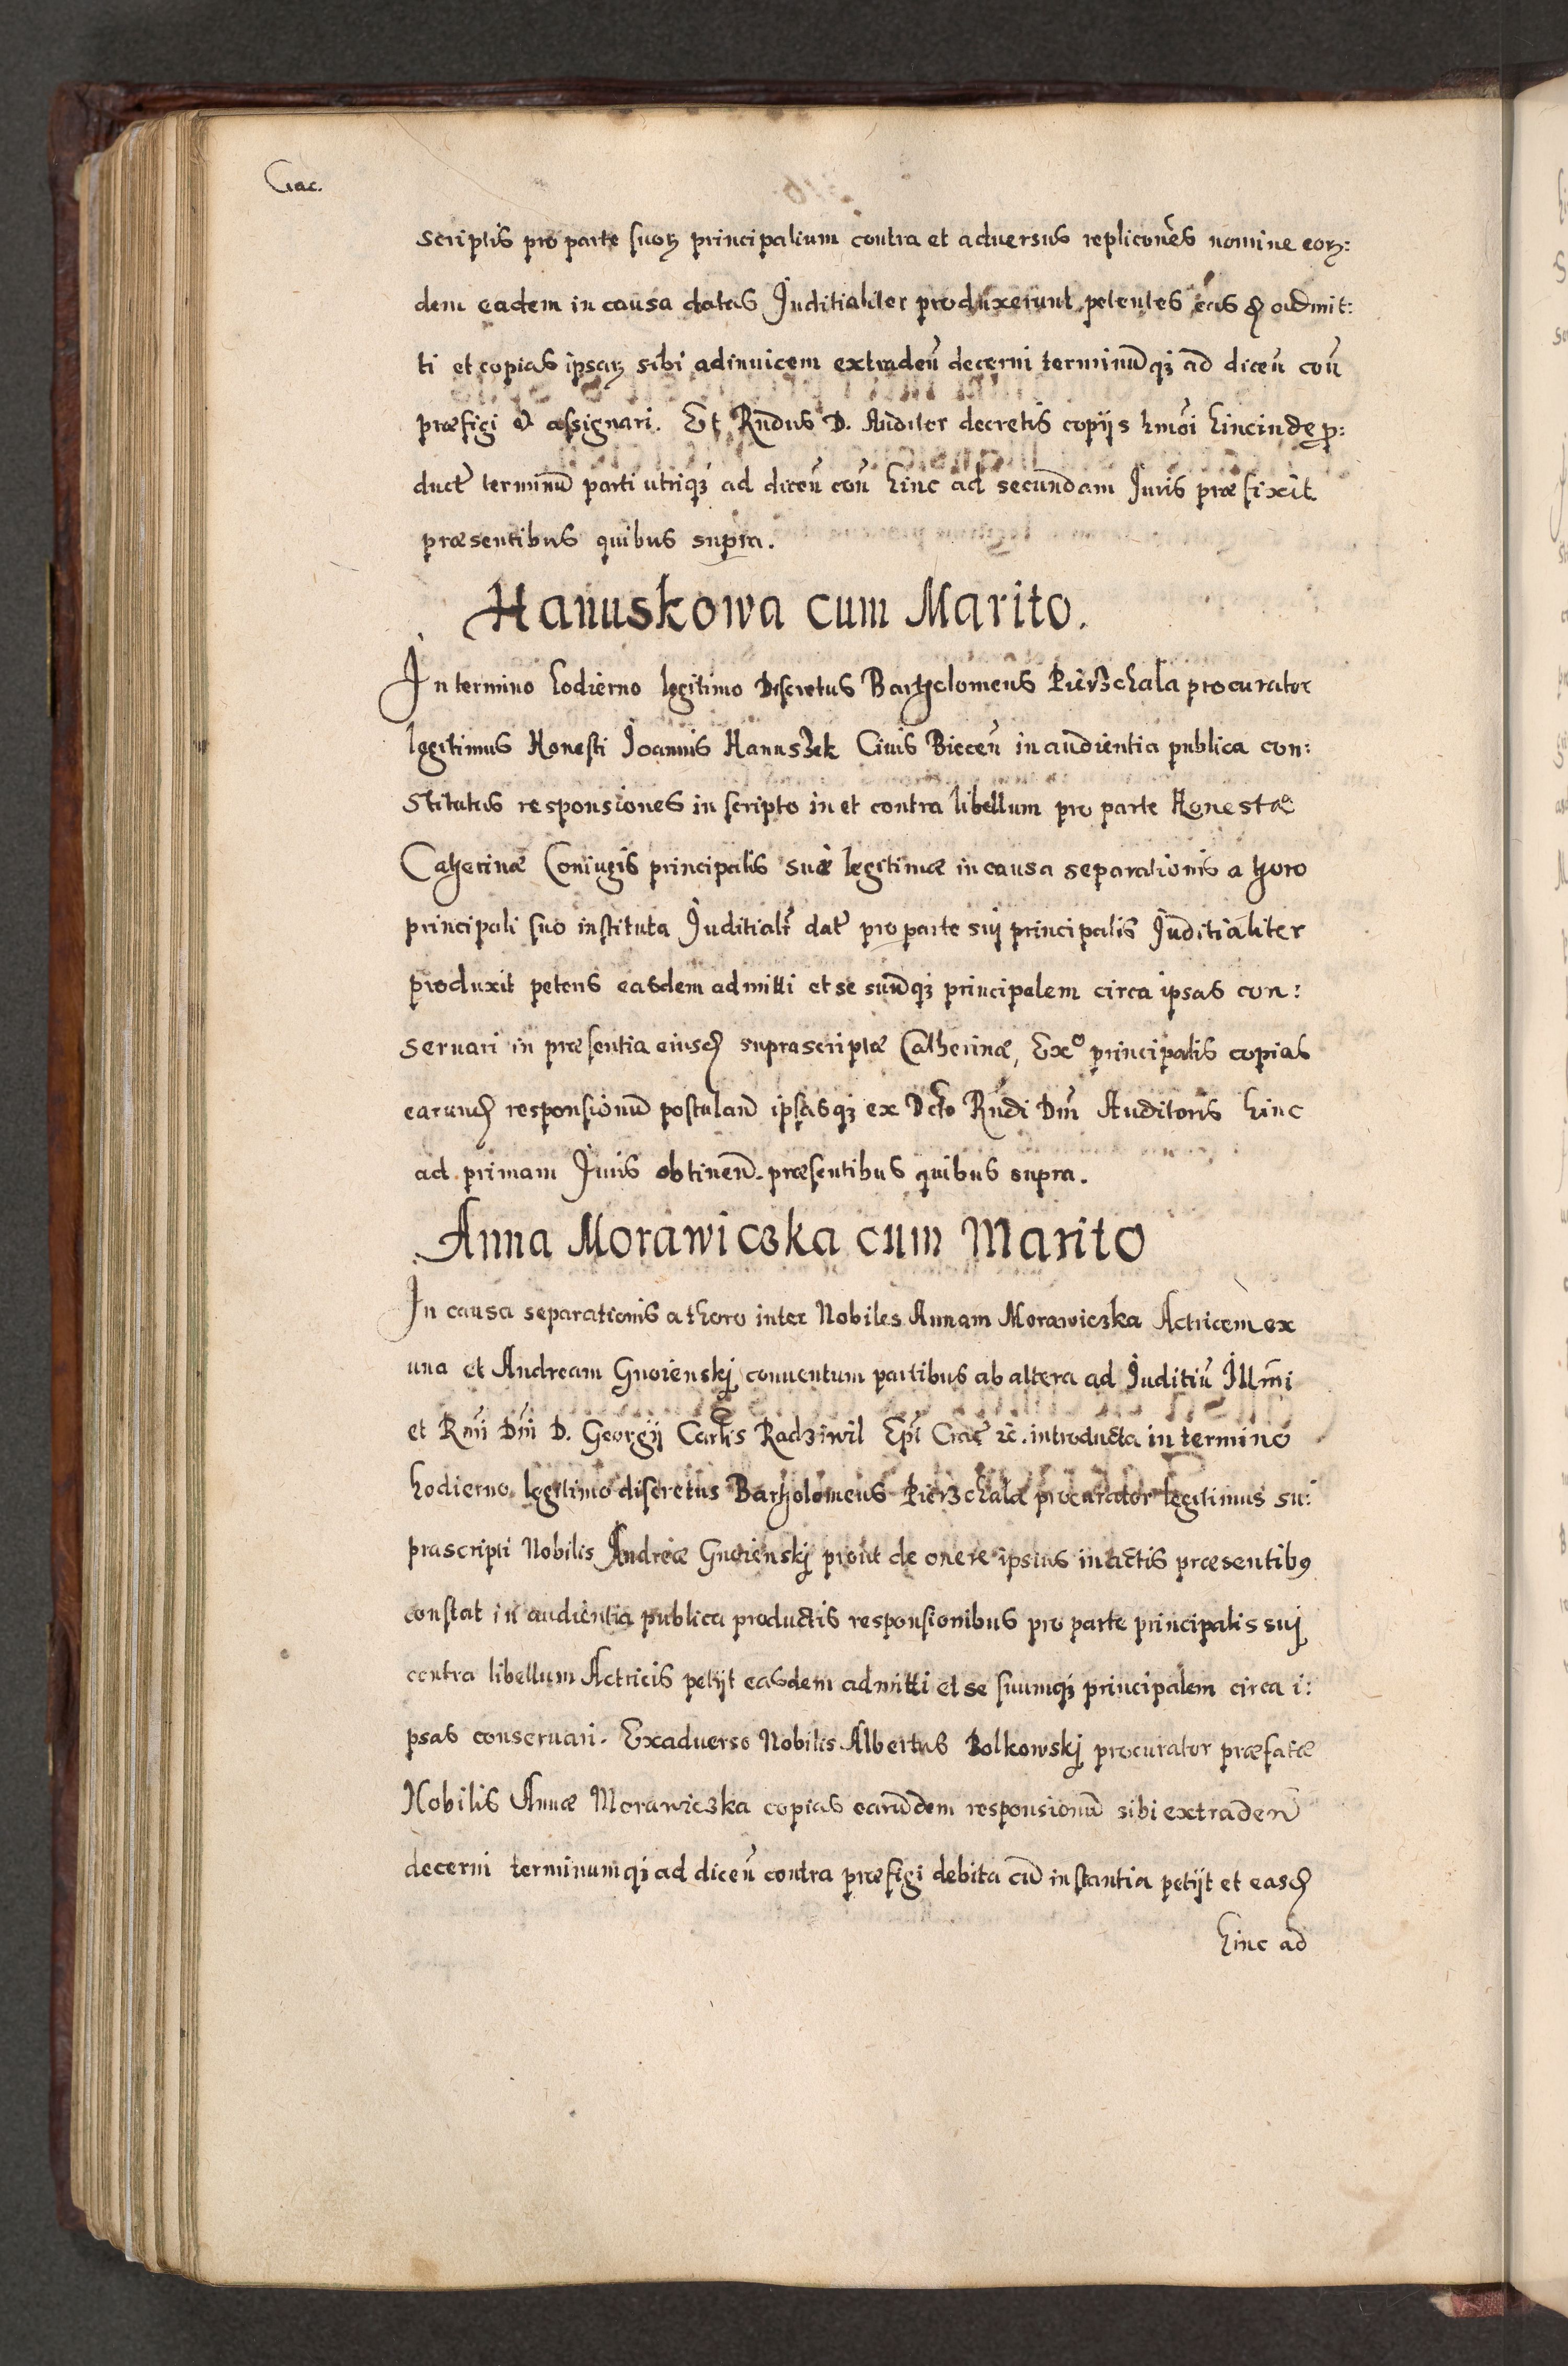 Crac.
scriptis pro parte suoꝝ principalium contra et aduersus replicoñes nomine eoꝝ:
dem eadem in causa datas Juditialiter produxerunt petentes eas & admit:
ti et copias ipsaꝝ sibi adinuicem extradeñ decerni terminūqꝫ ad diceñ coñ
præfigi & assignari. Et Rñdus D. Auditor decretis copijs hmoi hincinde ꝓ:
duct̃ terminū parti utriqꝫ ad diceñ coñ hinc ad secundam Juris præfixit
præsentibus quibus supra.
Hanuskowa cum Marito.
In termino hodierno legitimo Discretus Bartholomeus Pierzchala procurator
legitimus Honesti Joannis Hanuszek Ciuis Bieceñ in audientia publica con:
stitutus responsiones in scripto in et contra libellum pro parte Honestæ
Catherinæ Coniugis principalis suæ legitimæ in causa separationis a thoro
principali suo instituta Juditialr̃ dat̃ pro parte sui principalis Juditialiter
produxit petens easdem admitti et se suūqꝫ principalem circa ipsas con:
seruari in præsentia eiusđ suprascriptæ Catherinæ, Exº principalis copias
earunđ responsionū postulañ ipsasqꝫ ex Dcto Rñdi Dñi Auditoris hinc
ad primam Juris obtineñ. præsentibus quibus supra.
Anna Morawiczka cum Marito
In causa separationis a thoro inter Nobiles Annam Morawiczka Actricem ex
una et Andream Gnoienskj conuentum partibus ab altera ad Juditiū Illm̃i
et Rm̃i Dñi D. Georgij Carlis Radziwil Ep̃i Crac̃ ꝛc. introducta in termino
hodierno legitimo discretus Bartholomeus Pierzchala procurator legitimus su:
prascripti Nobilis Andreæ Gnoienskj prout de onere ipsius in actis præsentibꝯ
constat in audientia publica productis responsionibus pro parte principalis suj
contra libellum Actricis petijt easdem admitti et se suumqꝫ principalem circa i:
psas conseruari. Exaduerso Nobilis Albertus Bolkowskj procurator præfatæ
Nobilis Annæ Morawiczka copias earūdem responsionū sibi extradeñ
decerni terminumqꝫ ad diceñ contra præfigi debita cū instantia petijt et easđ
hinc ad